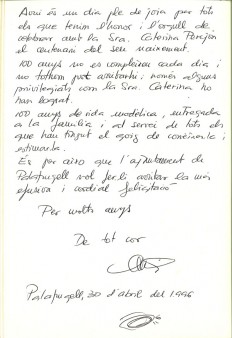 Avui és un dia ple de joia per tots
els que tenim l'honor i l'orgull de
celebrar amb la Sra. Caterina
el centenari del seu naixement.
100 anys no es compleixen cada dia i
no tothom pot contar-hi: només alguns
privilegiats com la Sra. Caterina ho
han lograt.
100 anys de vida modèlica, entregada
a la família i al servei de tots els
que han tingut el goig de conèixer-la i
estimar-la.
És per això que l'ajuntament de
Palafrugell vol fer-li arribar la més
efusiva i cordial felicitació
Per molts anys
De tot cor
Palafrugell, 30 d'abril del 1996